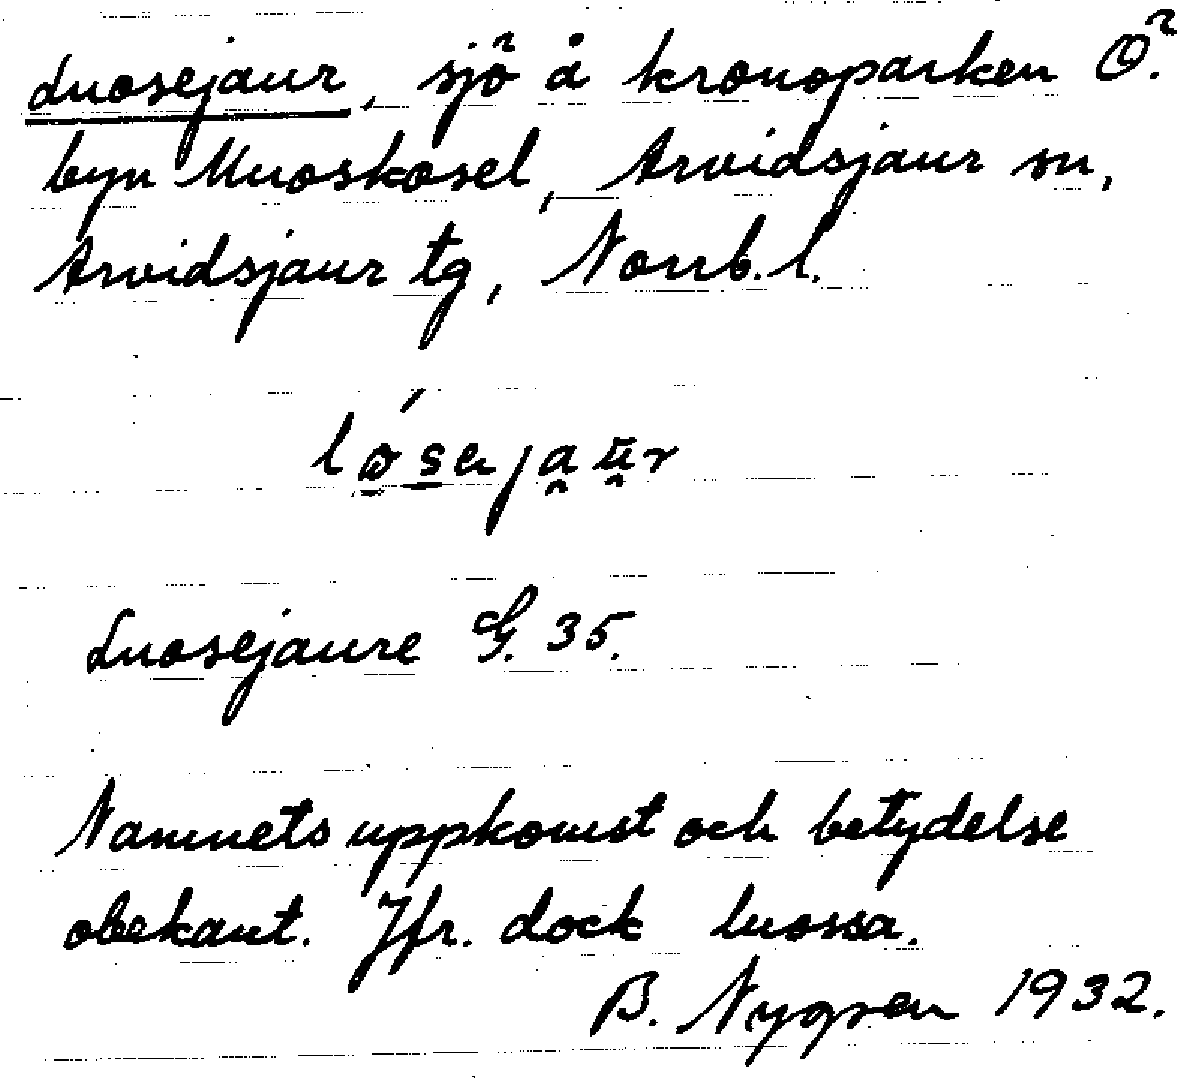 Luosejaur, sjö å kronoparken Ö.
byn Muoskosel, Arvidsjaur sn,
Arvidsjaur tg, Norrb. l.
Luosejaure G. 35.
Namnets uppkomst och betydelse
obekant. Jfr. dock luossa.
B. Nygren 1932.